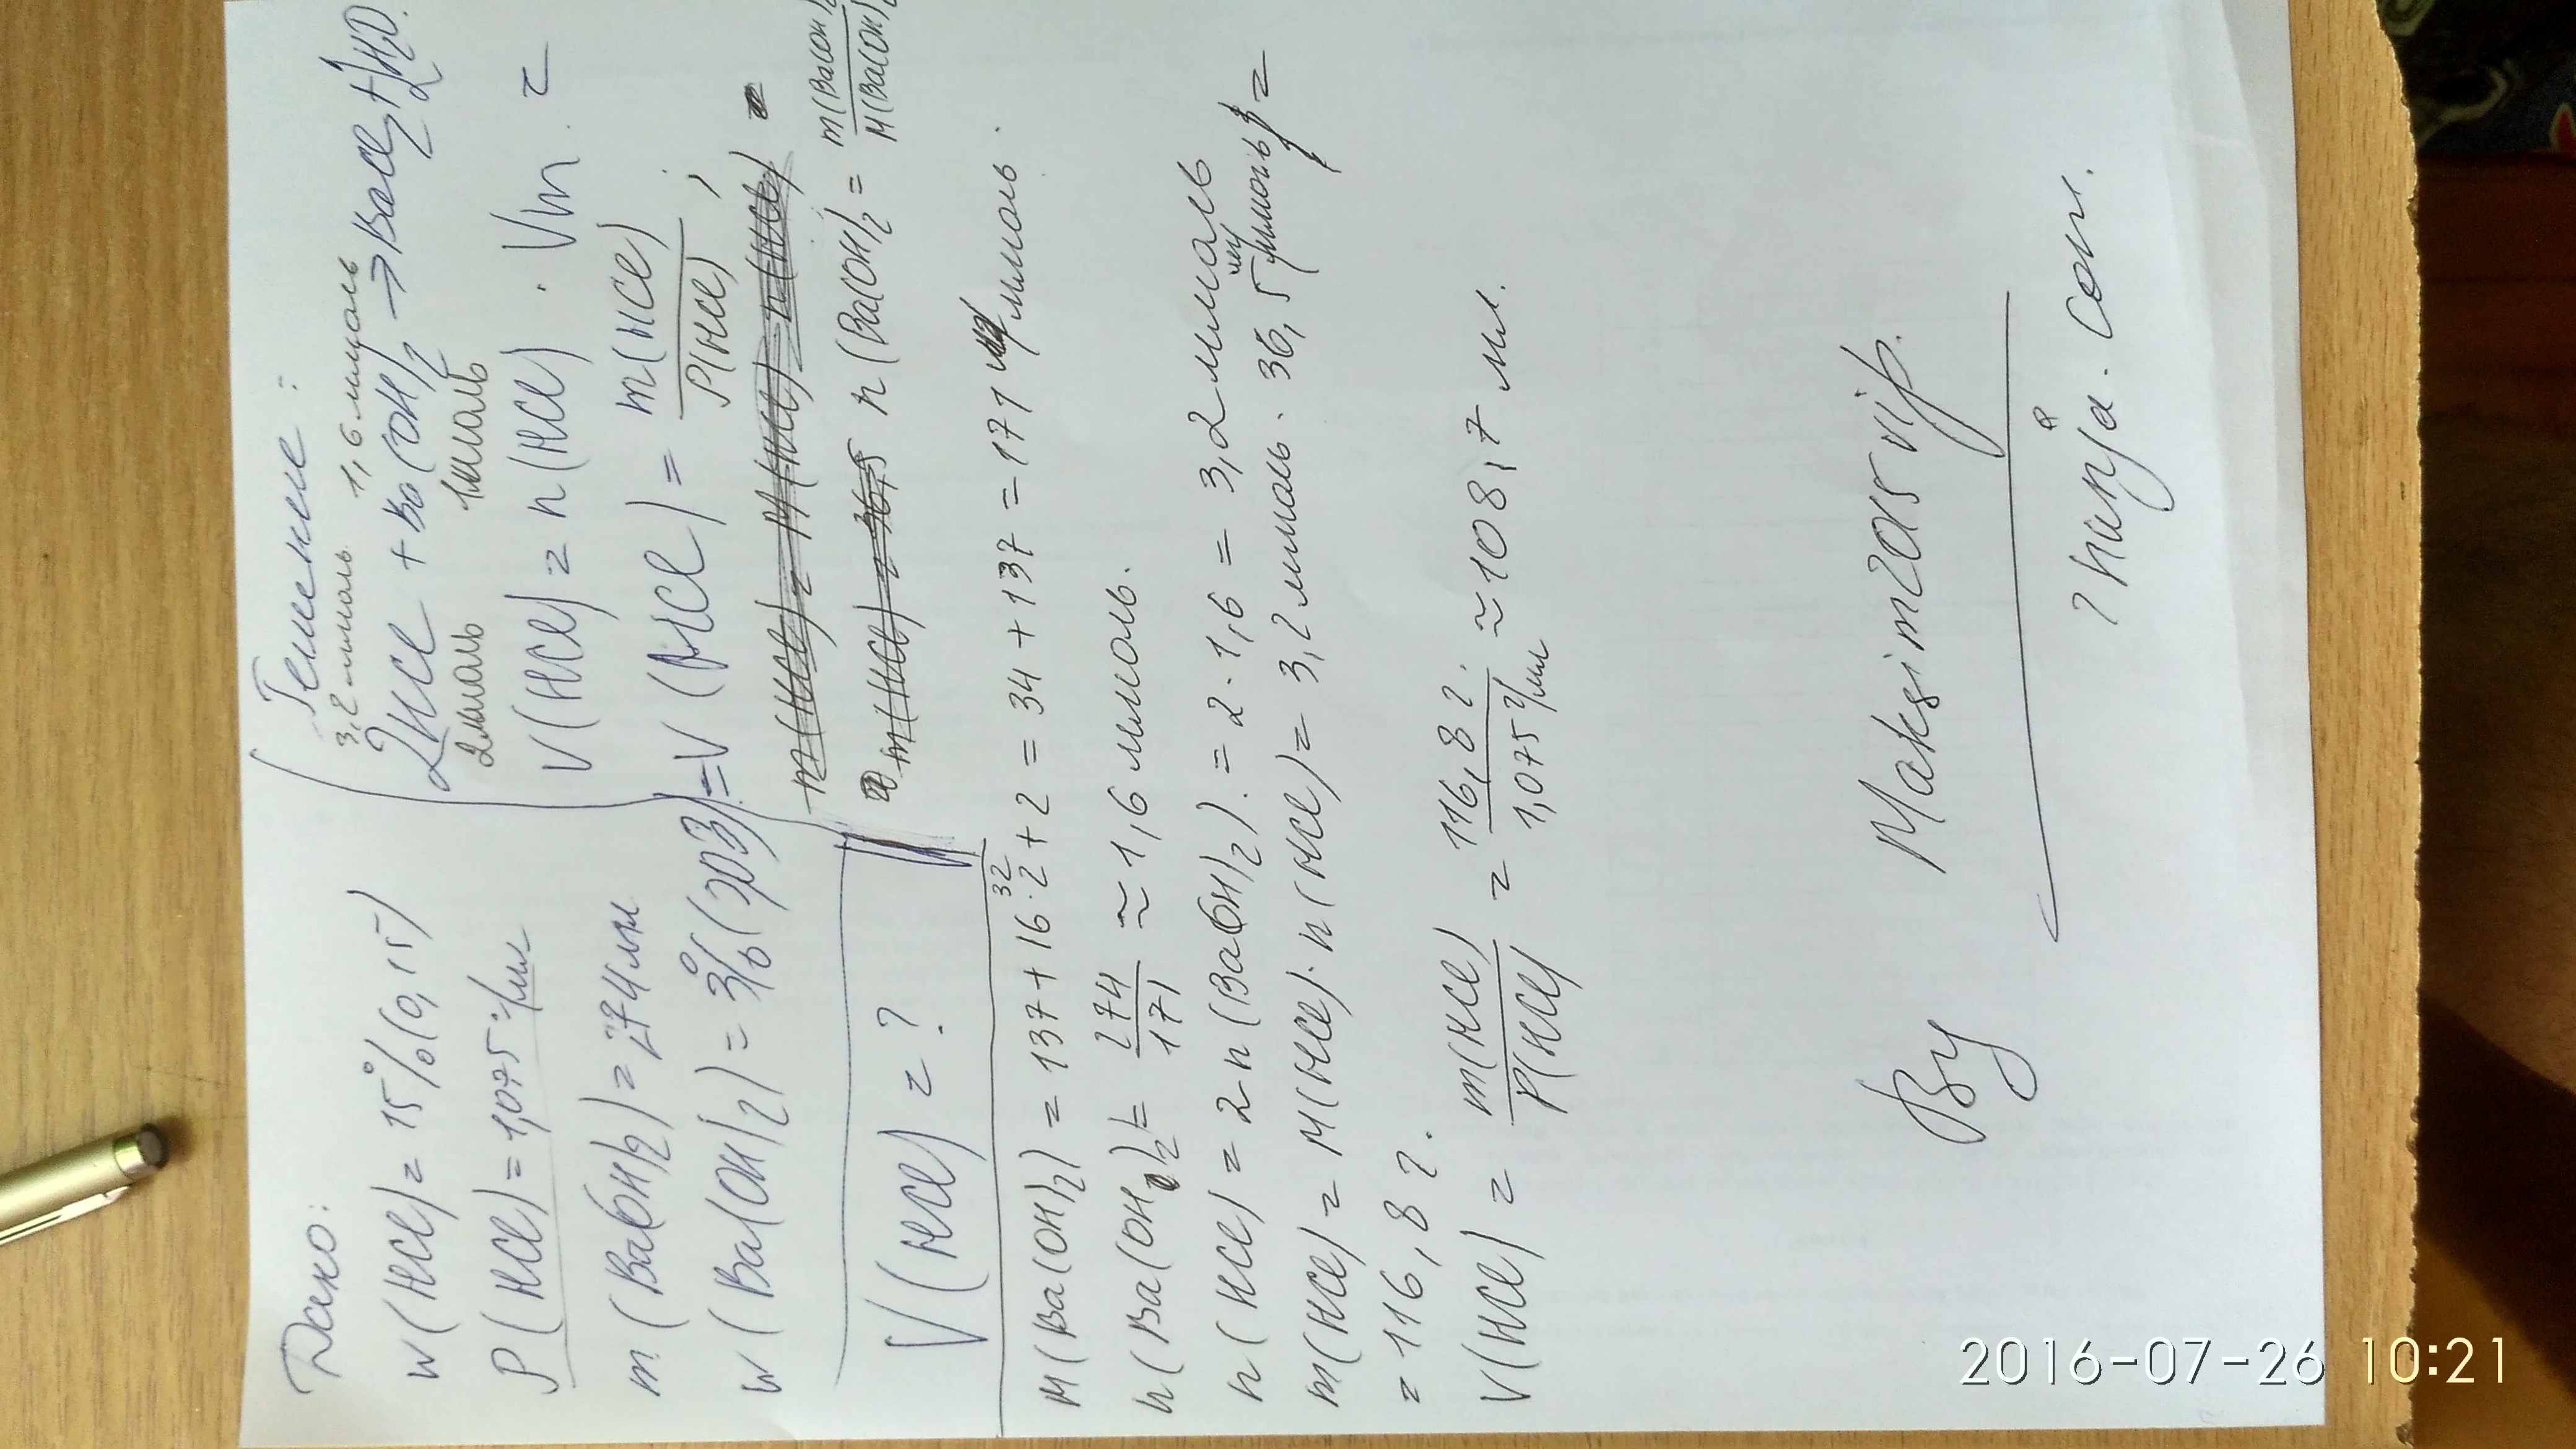 Дано:
w(HCl) = 15% (0,15)
ρ(HCl) = 1,075 г/мл
m(Ba(OH)2) = 274 мл
w(Ba(OH)2) = 3%
V(HCl) = ?
Решение:
3,2 ммоль 1,6 ммоль
2HCl + Ba(OH)2 → BaCl2 + 2H2O.
2моль 1моль
V(HCl) = n(HCl) · Vm. =
= V(HCl) = m(HCl)/ρ(HCl) ;
m(HCl) = M(HCl) · n(HCl)
m(HCl) = 36,5 n(Ba(OH)2 = m(Ba(OH)2/M(Ba(OH)2
M(Ba(OH)2) = 137 + 16·2 + 2 = 34 + 137 = 171 мг/ммоль.
32
n(Ba(OH)2) = 274/171 ≈ 1,6 ммоль.
n(HCl) = 2n(Ba(OH)2). = 2 · 1,6 = 3,2 ммоль
m(HCl) = M(HCl) · n(HCl) = 3,2 ммоль · 36,5 мг/ммоль =
= 116,8 г.
V(HCl) = m(HCl)/ρ(HCl) = 116,8 г./1,075 г/мл ≈ 108,7 мл.
By Maksimzasvip.
Znanja.com.
2016-07-26 10:21